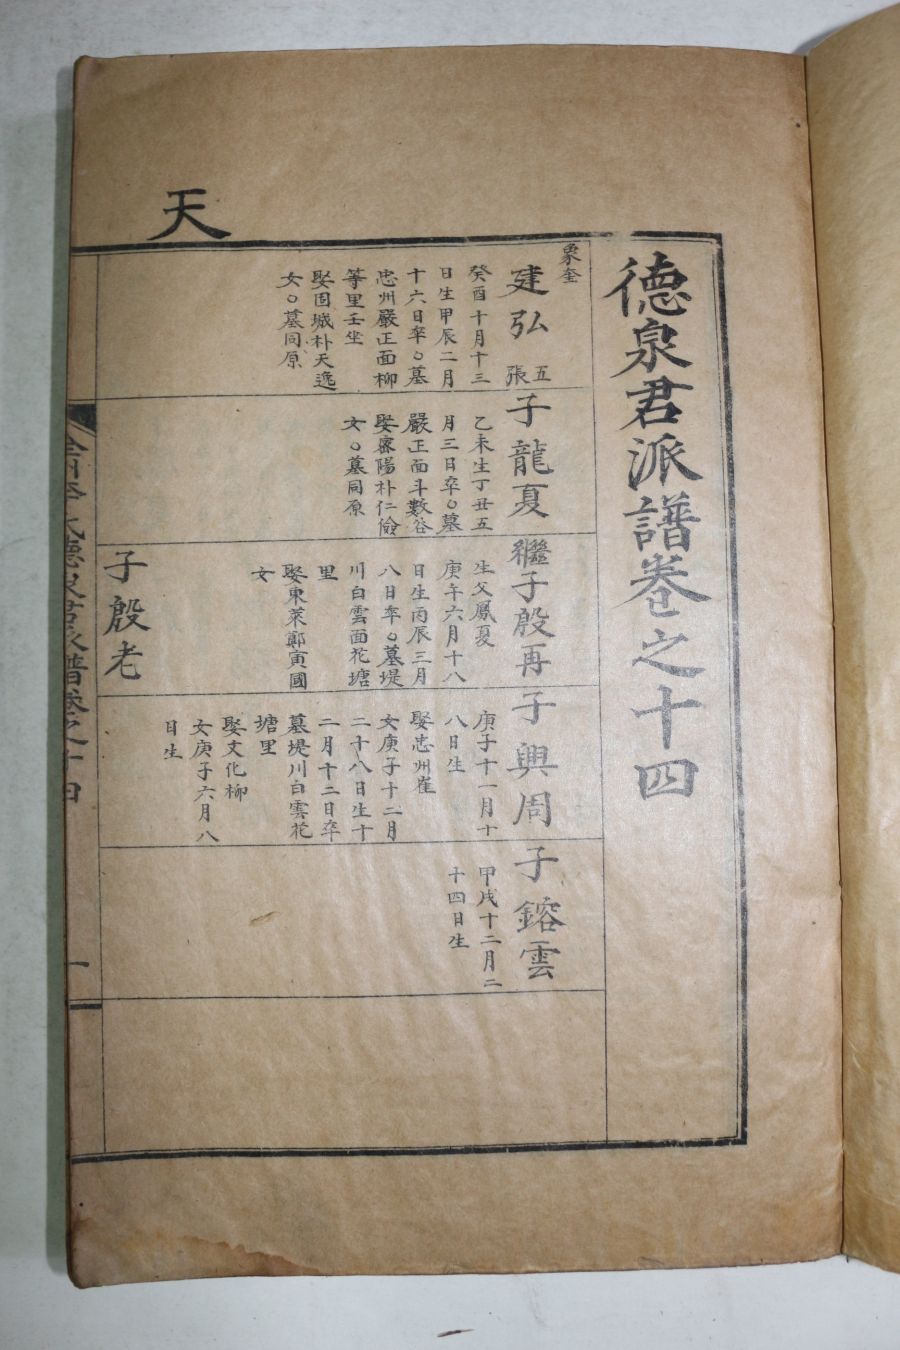 德泉君派譜卷之十四
天
象奎
建弘
五
張
癸酉十月十三
日生甲辰二月
十六日卒○墓
忠州嚴正面柳
等里壬坐
娶固城朴天逸
女○墓同原
子龍夏
乙未生丁丑五
月三日卒○墓
嚴正面斗數谷
娶密陽朴仁儉
女○墓同原
繼子殷再
生父鳳夏
庚午六月十八
日生丙辰三月
八日卒○墓堤
川白雲面花塘
里
娶東萊鄭寅國
女
子興周
庚子十一月十
八日生
娶忠州崔
女庚子十二月
二十八日生十
二月十二日卒
墓堤川白雲花
塘里
娶文化柳
女庚子六月八
日生
子鎔雲
甲戌十二月二
十四日生
子殷老
德泉君派譜卷之十四
一